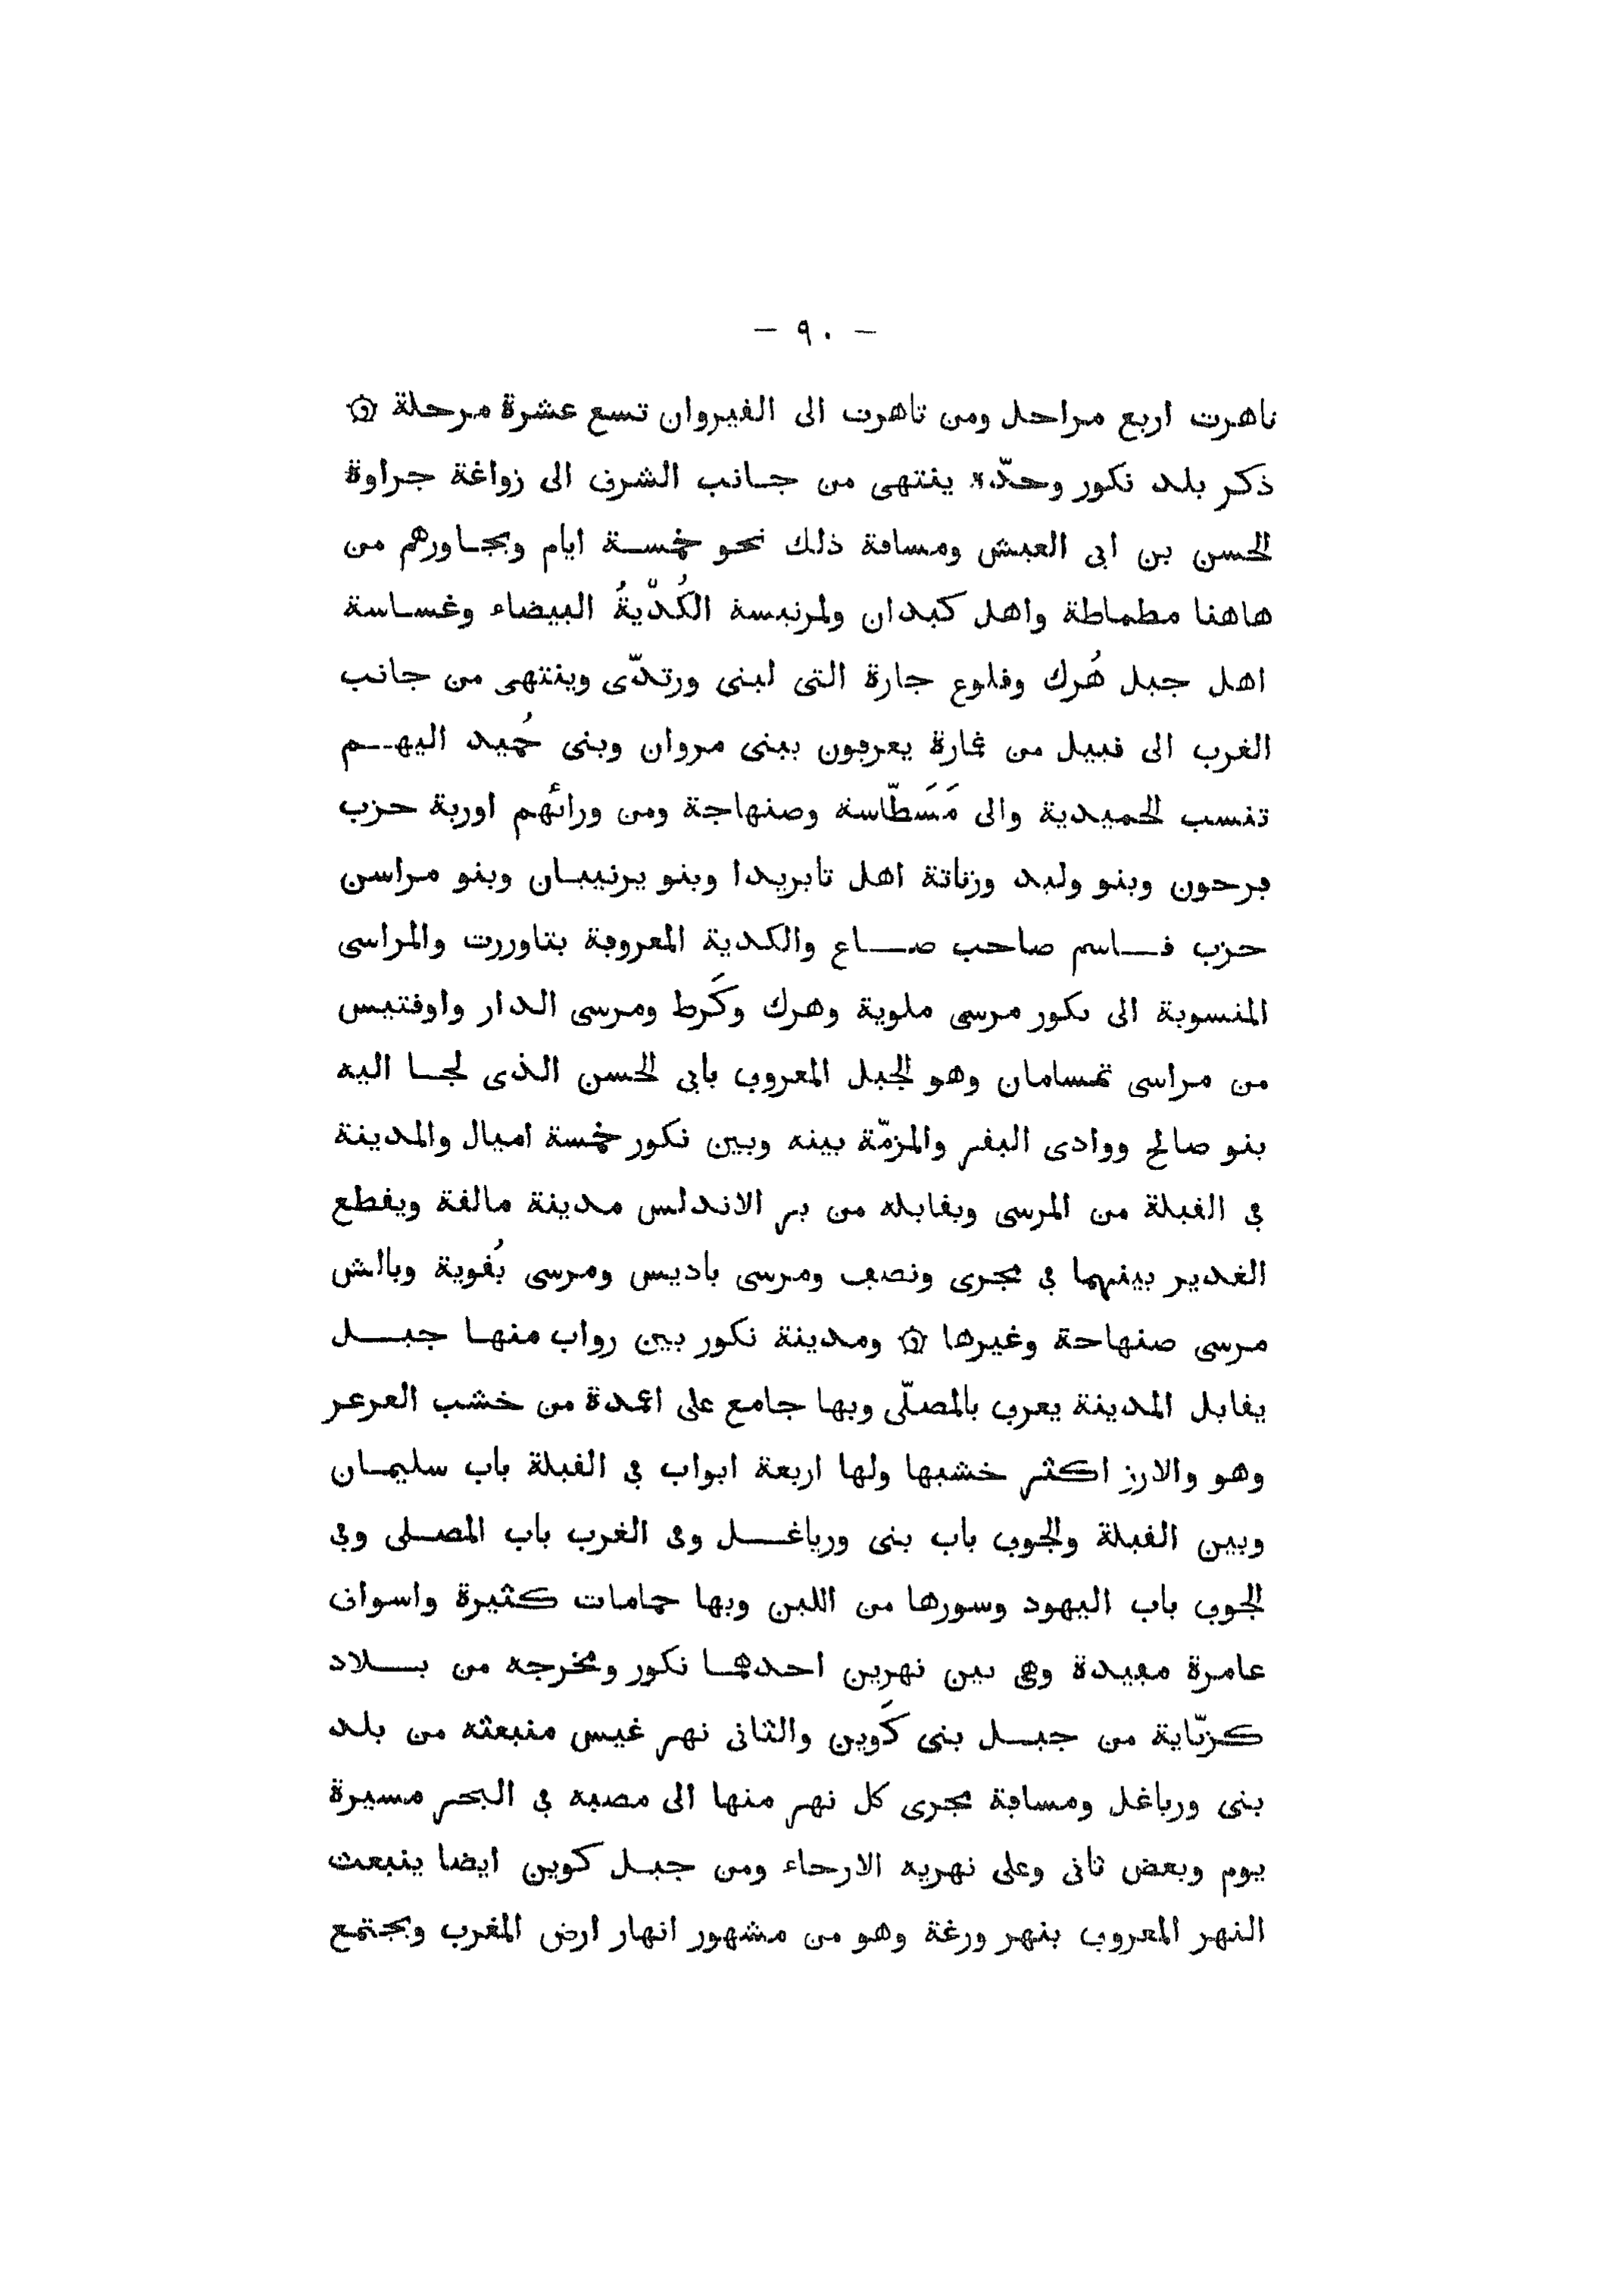 — ٩٠ —
تاهرت اربع مراحل ومن تاهرت الى القيروان تسع عشرة مرحلة ۞
ذكر بلد نكور وحدّه ينتهى من جانب الشرق الى زواغة جراوة
الحسن بن ابى العيش ومسافة ذلك نحو خمسة ايام ويجاورهم من
هاهنا مطماطة واهل كبدان ولمرنيسة الكُدّيةُ البيضاء وغساسة
اهل جبل هُرك وقلوع جارة التى لبنى ورتدّى وينتهى من جانب
الغرب الى قبيل من غمارة يعرفون ببنى مروان وبنى حُميد اليهم
تنسب الحميدية والى مَسَطّاسة وصنهاجة ومن ورائهم اوربة حزب
فرحون وبنو وليد وزناتة اهل تابريدا وبنو يرنيبان وبنو مراسن
حزب قاسم صاحب صاع والكدية المعروفة بتاوررت والمراسى
المنسوبة الى نكور مرسى ملوية وهرك وكَرط ومرسى الدار واوفتيس
من مراسى تمسامان وهو الجبل المعروف بابى الحسن الذى لجا اليه
بنو صالح ووادى البقر والمزمّة بينه وبين نكور خمسة اميال والمدينة
فى القبلة من المرسى ويقابله من بر الاندلس مدينة مالقة ويقطع
الغدير بينهما فى مجرى ونصف ومرسى باديس ومرسى بُقوية وبالش
مرسى صنهاجة وغيرها ۞ ومدينة نكور بين رواب منها جبل
يقابل المدينة يعرف بالمصلّى وبها جامع على اعمدة من خشب العرعر
وهو والارز اكثر خشبها ولها اربعة ابواب فى القبلة باب سليمان
وبين القبلة والجوف باب بنى ورياغل وفى الغرب باب المصلى وفى
الجوف باب اليهود وسورها من اللبن وبها حمامات كثيرة واسواق
عامرة مفيدة وهى بين نهرين احدهما نكور ومخرجه من بلاد
كزنّاية من جبل بنى كَوين والثانى نهر غيس منبعثه من بلد
بنى ورياغل ومسافة مجرى كل نهر منها الى مصبه فى البحر مسيرة
يوم وبعض ثانى وعلى نهريه الارحاء ومن جبل كوين ايضا ينبعث
النهر المعروف بنهر ورغة وهو من مشهور انهار ارض المغرب ويجتمع